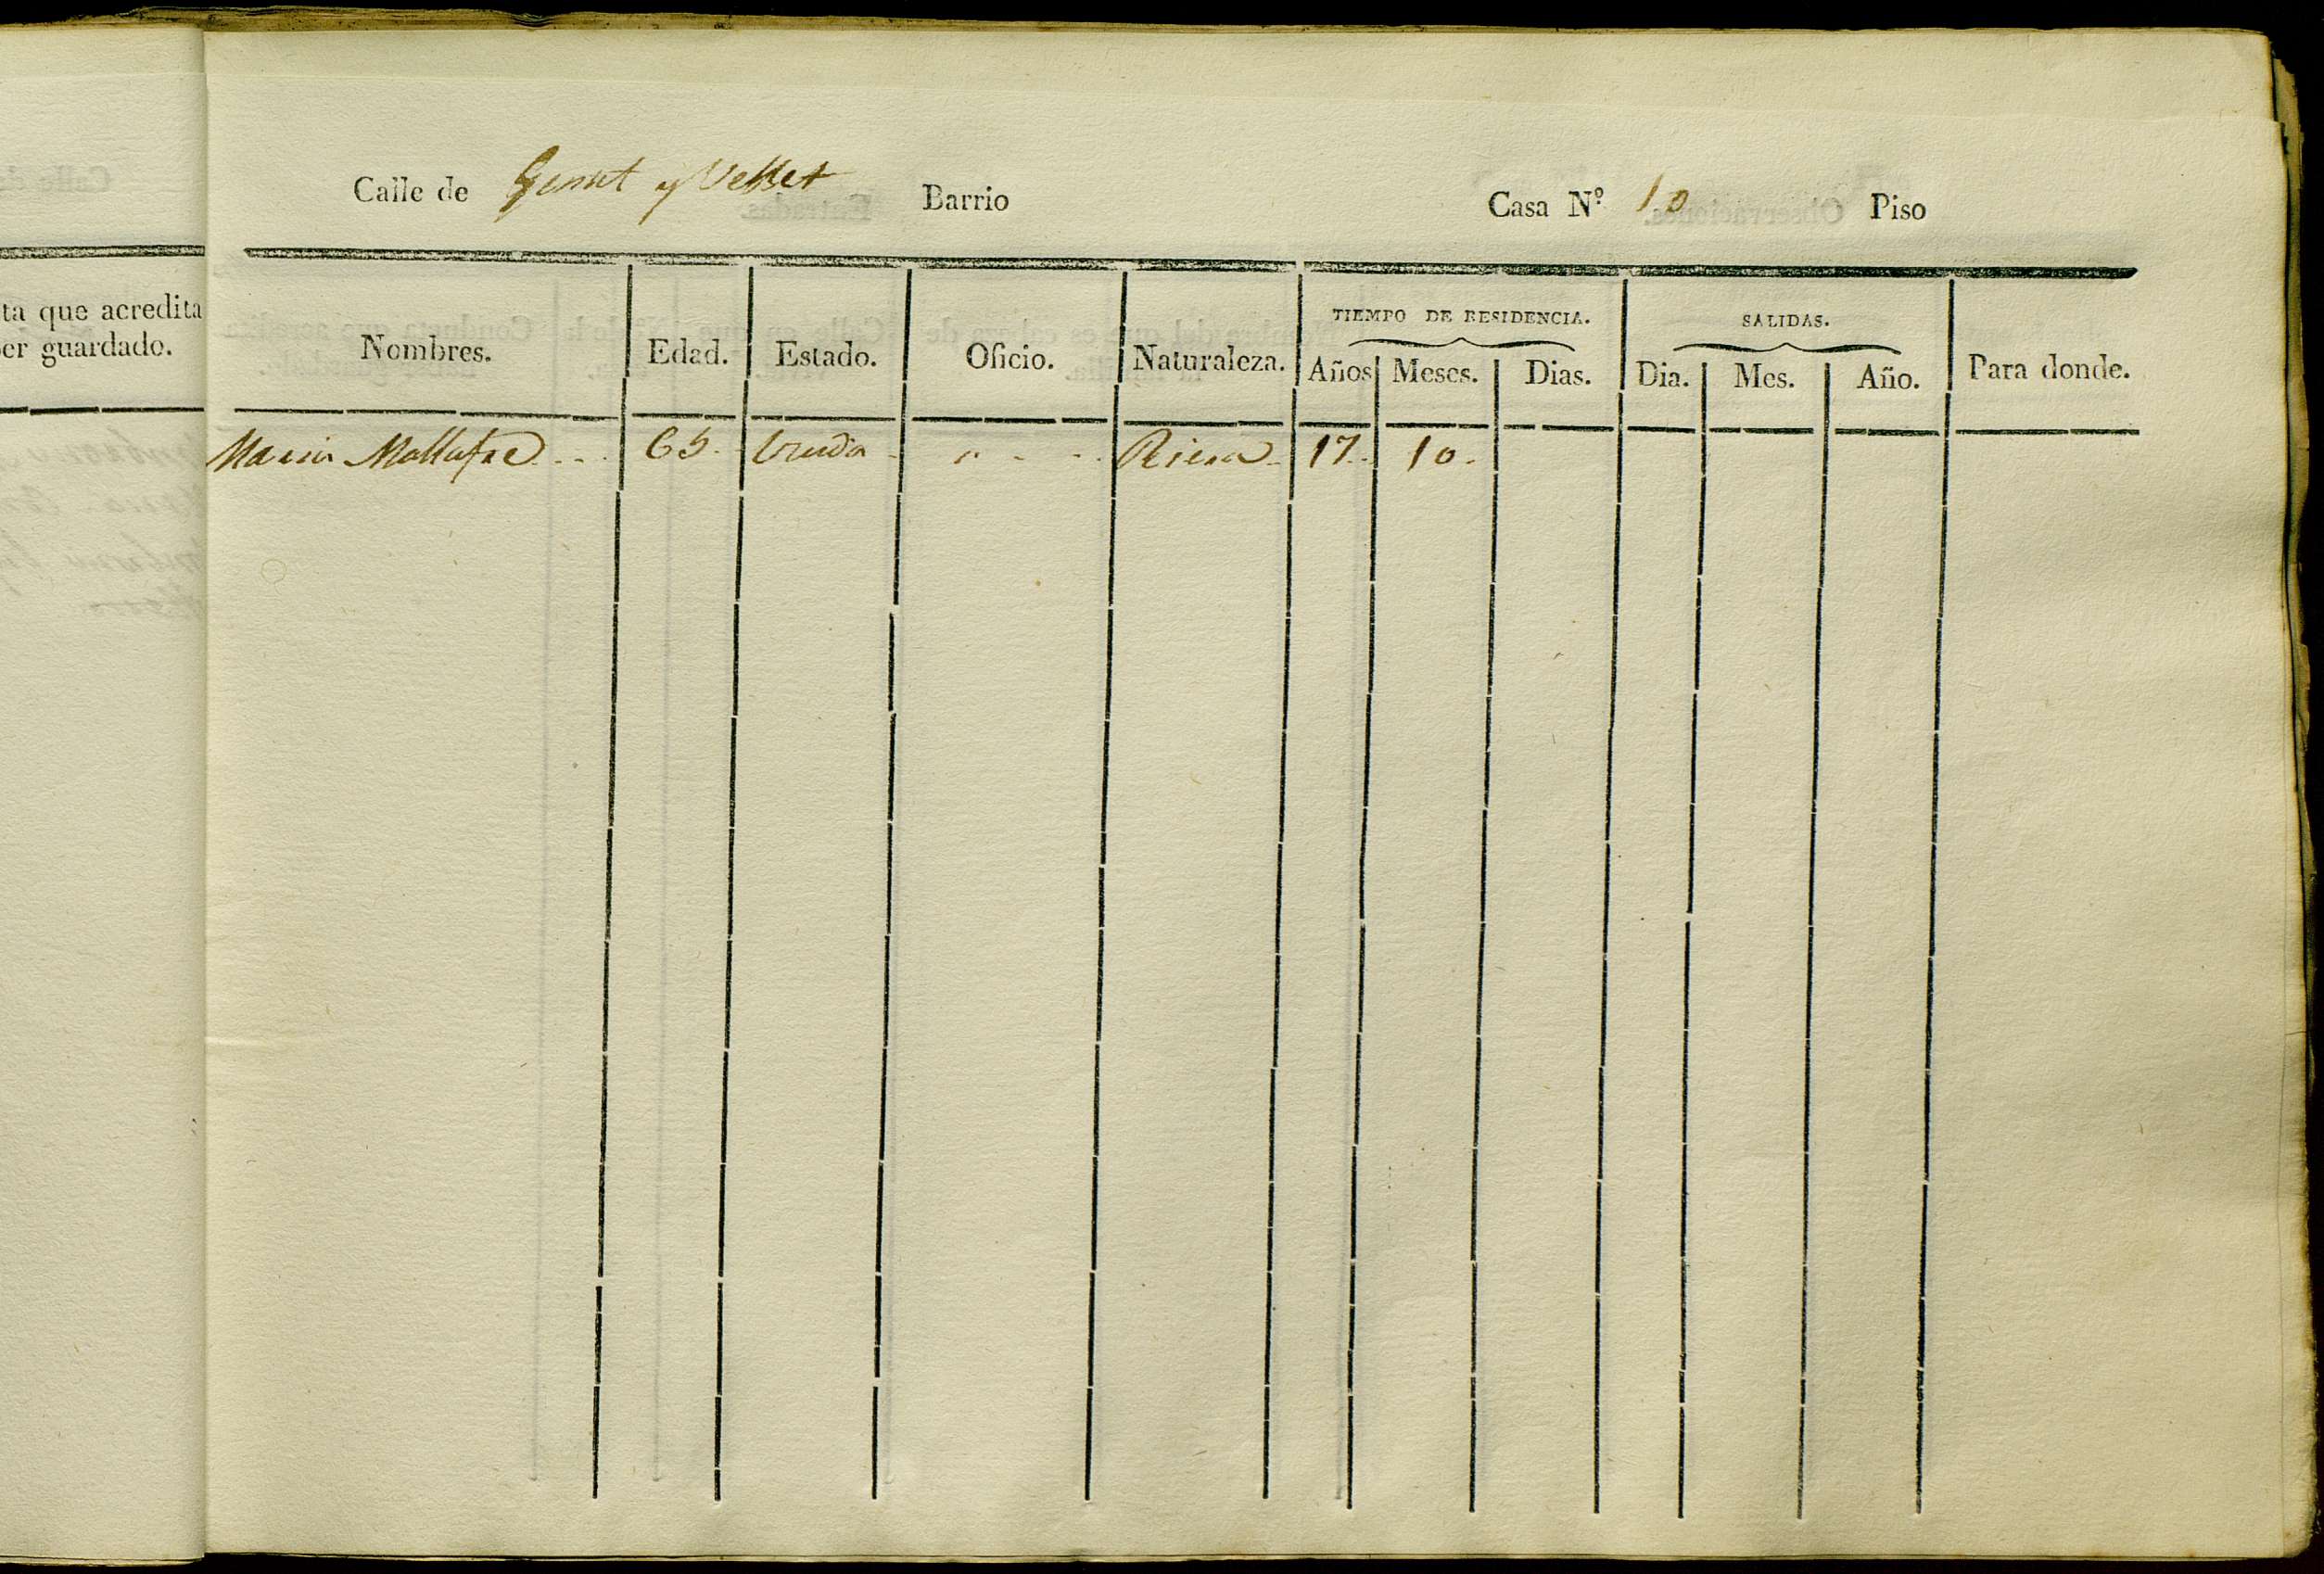 ta que acredita
er guardado.
Calle de y Barrio Casa Nº 10 Piso
Nombres. Edad. Estado. Oficio. Naturaleza. TIEMPO DE RESIDENCIA. Años Meses. Dias. SALIDAS. Dia. Mes. Año. Para donde.
Maria Mallafre 65. Viuda " Riera 17. 10.